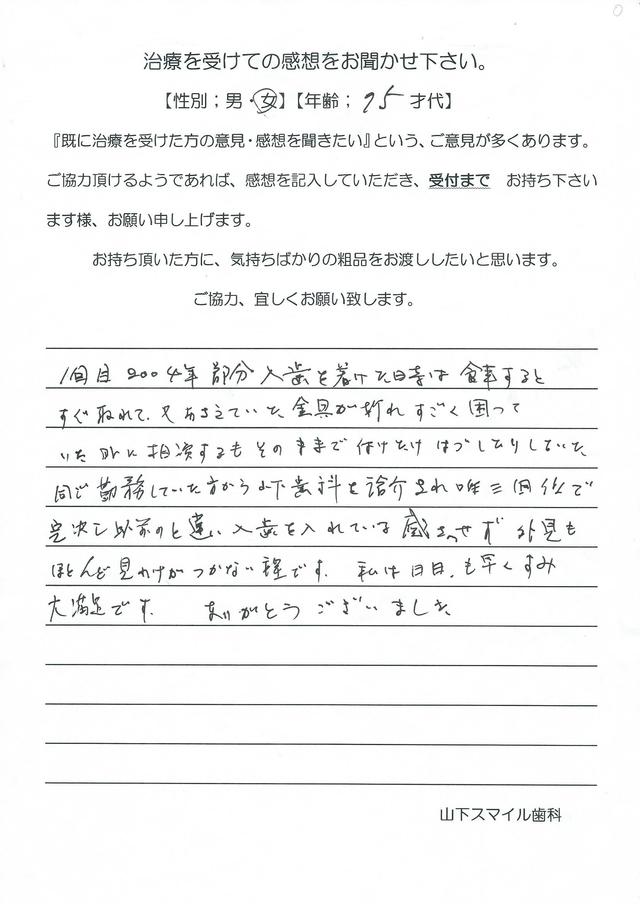 治療を受けての感想をお聞かせ下さい。
【性別；男・女】【年齢；75才代】
『既に治療を受けた方の意見・感想を聞きたい』という、ご意見が多くあります。
ご協力頂けるようであれば、感想を記入していただき、受付まで お持ち下さい
ます様、お願い申し上げます。
お持ち頂いた方に、気持ちばかりの粗品をお渡ししたいと思います。
ご協力、宜しくお願い致します。
1回目 2004年 部分入歯を着けた時は 食事すると
すぐ取れて、又おさえていた金具が折れ すごく困って
いた 所に相談するもそのままで 付けたり はづしたりしていた
同じ勤務していた方から山下歯科を紹介され 唯三回位で
完決し以前のと違い入歯を入れている感じさせず 外見も
ほとんど見わけがつかない程です。 私は日日も早くすみ
大満足です。 ありがとうございました
山下スマイル歯科